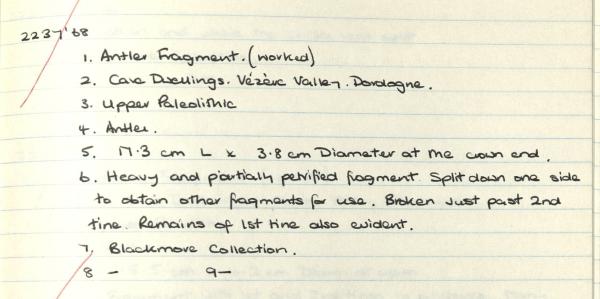 2237'68
1. Antler Fragment. (worked)
2. Cave Dwellings. Vézère Valley. Dordogne.
3. Upper Paleolithic
4. Antler.
5. 17.3 cm L x 3.8 cm Diameter at the crown end.
6. Heavy and partially petrified fragment. Split down one side
to obtain other fragments for use. Broken just past 2nd
tine. Remains of 1st tine also evident.
7. Blackmore Collection.
8 - 9-